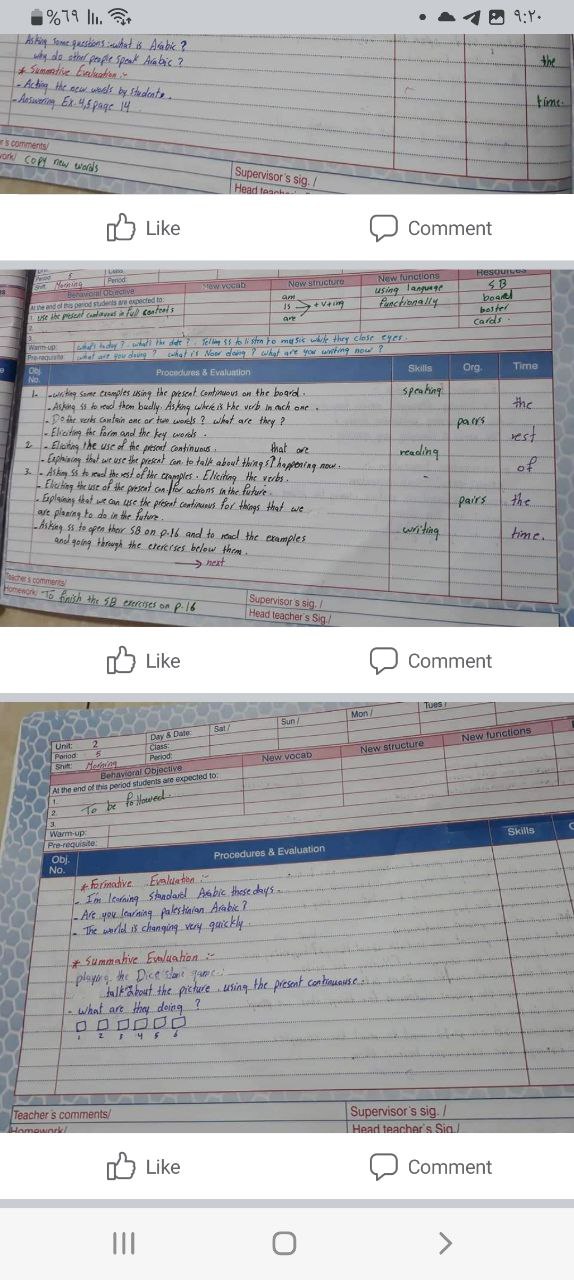 %٦٩
٩:٢٠
Asking some questions: what is Arabic ?
why do other people speak Arabic ?
* Summative Evaluation :-
- Acting the new words by students.
- Answering Ex. 4,5 page 14
the
time.
r's comments/
work/ copy new words
Supervisor's sig. /
Head teacher's
Like
Comment
Period: 5
Class:
Shift: Morning
Period:
Behavioral Objective
New vocab
New structure
New functions
Resources
At the end of this period students are expected to:
1. use the present continuous in full contents
2.
3.
am
is → + v + ing
are
using language
functionally
SB
board
poster
cards.
Warm-up: what's today ? . what's the date ? . Telling ss to listen to music while they close eyes.
Pre-requisite: what are you doing ? what is Noor doing ? what are you writing now ?
Obj. No.
Procedures & Evaluation
Skills
Org.
Time
1. - writing some examples using the present continuous on the board.
- Asking ss to read them loudly. Asking where is the verb in each one.
- Do the verbs contain one or two words ? what are they ?
- Eliciting the form and the key words.
2. - Eliciting the use of the present continuous.
- Explaining that we use the present con. to talk about things that are happening now.
3. - Asking ss to read the rest of the examples. Eliciting the verbs.
- Eliciting the use of the present con. for actions in the future.
- Explaining that we can use the present continuous for things that we
are planing to do in the future.
- Asking ss to open their SB on p.16 and to read the examples
and going through the exercises below them.
→ next
speaking
reading
-
writing
pairs
pairs
the
rest
of
the
time.
Teacher's comments/
Homework/ To finish the SB exercises on p.16
Supervisor's sig. /
Head teacher's Sig./
Like
Comment
Unit: 2
Day & Date:
Sat /
Sun /
Mon /
Tues /
Period: 5
Class:
Shift: Morning
Period:
Behavioral Objective
New vocab
New structure
New functions
At the end of this period students are expected to:
1.
2. To be followed.
3.
Warm-up:
Pre-requisite:
Obj. No.
Procedures & Evaluation
Skills
* Formative Evaluation :-
- I'm learning standard Arabic these days.
- Are you learning palestinian Arabic ?
- The world is changing very quickly
* Summative Evaluation :-
playing the Dice game:
talk about the picture . using the present continuouse.
- what are they doing ?
1 2 3 4 5 6
Teacher's comments/
Homework/
Supervisor's sig. /
Head teacher's Sig./
Like
Comment